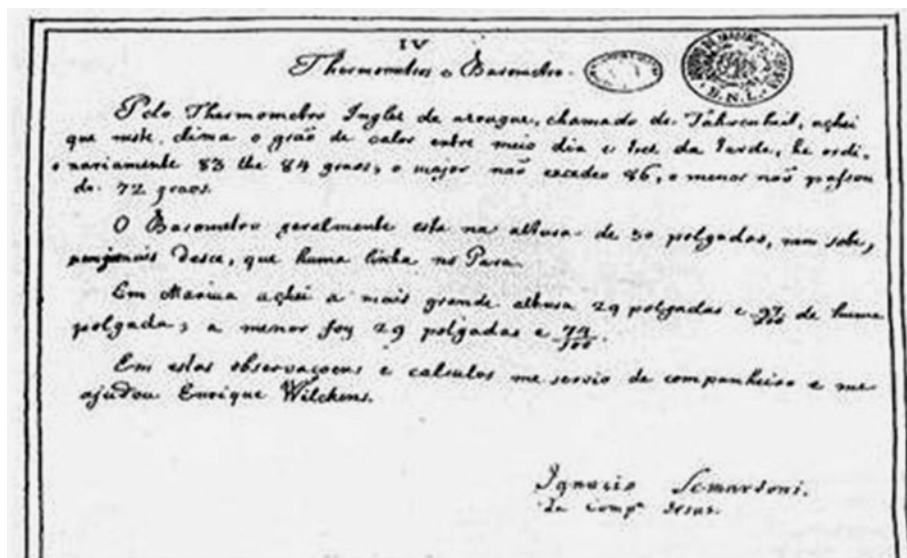 IV
Thermometro e Barometro.
B.N.L.
Pelo Thermometro Inglez de azougue, chamado de Fahrenheit, achei
que neste clima o gráo de calor entre meio dia e tres da tarde, he ordi,
nariamente 83 the 84 graos, o major não excedeo 86, o menor não passou
de 72 graos.
O Barometro geralmente esta na altura de 30 polgadas, nem sobe,
nem mais desce, que huma linha no Para.
Em Mariua achei a mais grande altura 29 polgadas e 97/100 de huma
polgada; a menor foy 29 polgadas e 79/100.
Em estas observaçoens e calculos me servio de companheiro e me
ajudou Enrique Wilckens.
Ignacio Semartoni.
da Compª Jesus.